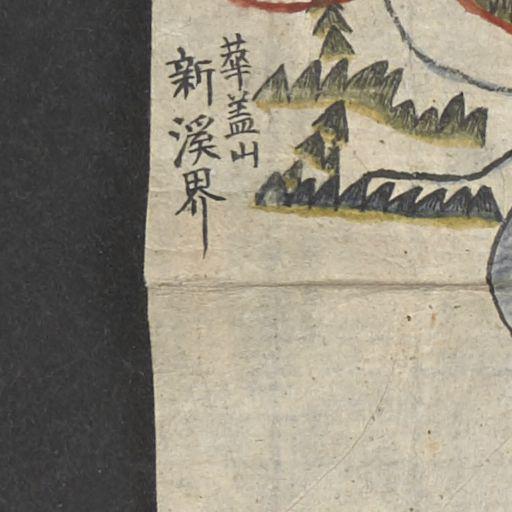 華盖山
新溪界